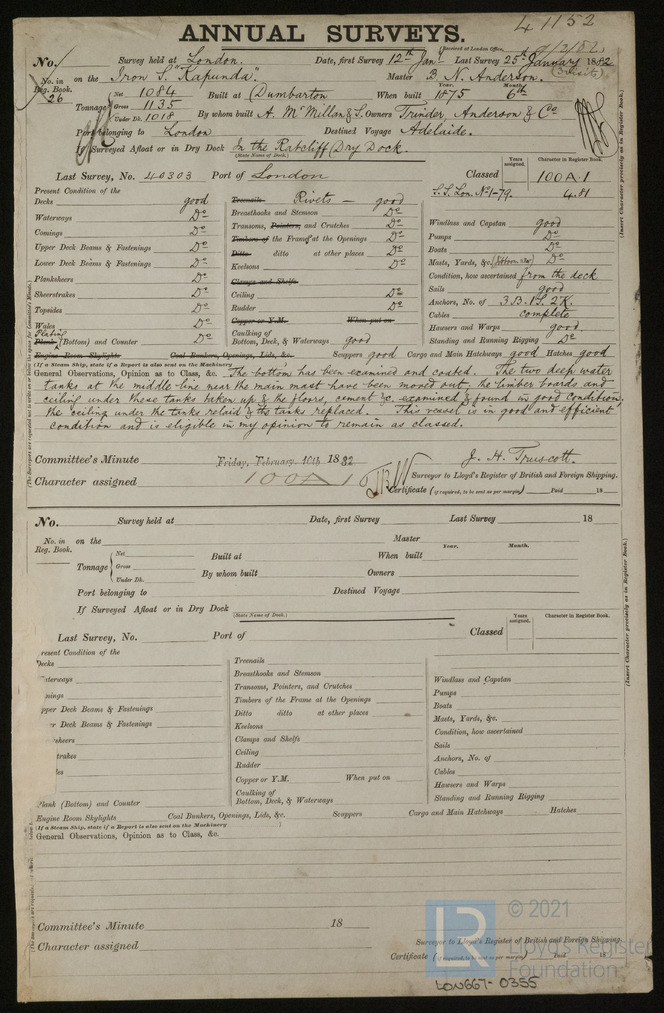 ANNUAL SURVEYS.
41152
(Received at London Office, 9/2/82)
No. Survey held at London. Date, first Survey 12th Jany Last Survey 25th January 1882
(3 visits)
No. in Reg. Book. 26 on the Iron S. "Kapunda". Master B. N. Anderson.
Tonnage Net 1084 Built at Dumbarton When built Year. 1875 Month. 6th
Gross 1135
Under Dk. 1018 By whom built A. McMillan & S. Owners Trinder, Anderson & Co
Port belonging to London Destined Voyage Adelaide.
If Surveyed Afloat or in Dry Dock In the Ratcliff Dry Dock.
(State Name of Dock.)
Last Survey, No. 40303 Port of London Classed Years assigned. Character in Register Book. 100A.1
S.S. Lon. No 1-79. 4.81
(Insert Character precisely as in Register Book.)
Present Condition of the
Decks good
Waterways Do
Comings Do
Upper Deck Beams & Fastenings Do
Lower Deck Beams & Fastenings Do
Planksheers Do
Sheerstrakes Do
Topsides Do
Wales Do
Plating
Plank (Bottom) and Counter Do
Treenails Rivets — good
Breasthooks and Stemson Do
Transoms, Pointers, and Crutches Do
Timbers of the Frame at the Openings Do
Ditto ditto at other places Do
Keelsons Do
Clamps and Shelfs
Ceiling Do
Rudder Do
Copper or Y.M. When put on
Caulking of
Bottom, Deck, & Waterways good
Windlass and Capstan good
Pumps Do
Boats Do
Masts, Yards, &c. Do
Condition, how ascertained from the deck
Sails good
Anchors, No. of 3.B. 1S. 2K.
Cables complete
Hawsers and Warps good
Standing and Running Rigging Do
Engine Room Skylights Coal Bunkers, Openings, Lids, &c. Scuppers good Cargo and Main Hatchways good Hatches good
(If a Steam Ship, state if a Report is also sent on the Machinery )
General Observations, Opinion as to Class, &c. The bottom has been examined and coated. The two deep water
tanks at the middle line near the main mast have been moved out, the limber boards and
ceiling under these tanks taken up & the floors, cement &c. examined & found in good condition,
the ceiling under the tanks relaid & the tanks replaced. This vessel is in good and efficient
condition and is eligible in my opinion to remain as classed.
Committee's Minute Friday, February, 10th 1882 J. H. Truscott.
Surveyor to Lloyd's Register of British and Foreign Shipping.
Character assigned 100A1
Certificate (if required, to be sent as per margin) Paid 18
No. Survey held at Date, first Survey Last Survey 18
No. in Reg. Book. on the Master
Tonnage Net Built at When built Year. Month.
Gross
Under Dk. By whom built Owners
Port belonging to Destined Voyage
If Surveyed Afloat or in Dry Dock
(State Name of Dock.)
Last Survey, No. Port of Classed Years assigned. Character in Register Book.
(Insert Character precisely as in Register Book.)
resent Condition of the
Decks
aterways
mings
pper Deck Beams & Fastenings
er Deck Beams & Fastenings
sheers
trakes
les
Plank (Bottom) and Counter
Treenails
Breasthooks and Stemson
Transoms, Pointers, and Crutches
Timbers of the Frame at the Openings
Ditto ditto at other places
Keelsons
Clamps and Shelfs
Ceiling
Rudder
Copper or Y.M. When put on
Caulking of
Bottom, Deck, & Waterways
Windlass and Capstan
Pumps
Boats
Masts, Yards, &c.
Condition, how ascertained
Sails
Anchors, No. of
Cables
Hawsers and Warps
Standing and Running Rigging
Engine Room Skylights Coal Bunkers, Openings, Lids, &c. Scuppers Cargo and Main Hatchways Hatches
(If a Steam Ship, state if a Report is also sent on the Machinery )
General Observations, Opinion as to Class, &c.
Committee's Minute 18
Surveyor to Lloyd's Register of British and Foreign Shipping.
Character assigned
Certificate (if required, to be sent as per margin) Paid 18
LON667-0355
LR
© 2021
Lloyd's Register
Foundation